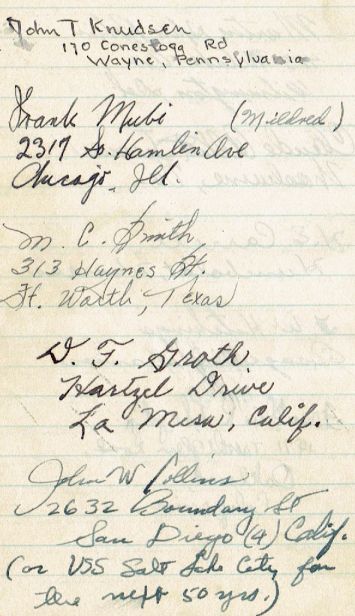 John T Knudsen
170 Conestoga Rd
Wayne, Pennsylvania
Frank Mubi (Mildred)
2317 So. Hamlin Ave
Chicago, Ill.
M. C. Smith
313 Haynes St.
Ft. Worth, Texas
D. F. Groth
Hartzel Drive
La Mesa, Calif.
John W Collins
2632 Boundary St
San Diego (4) Calif.
(or USS Salt Lake City for
the next 50 yrs.)